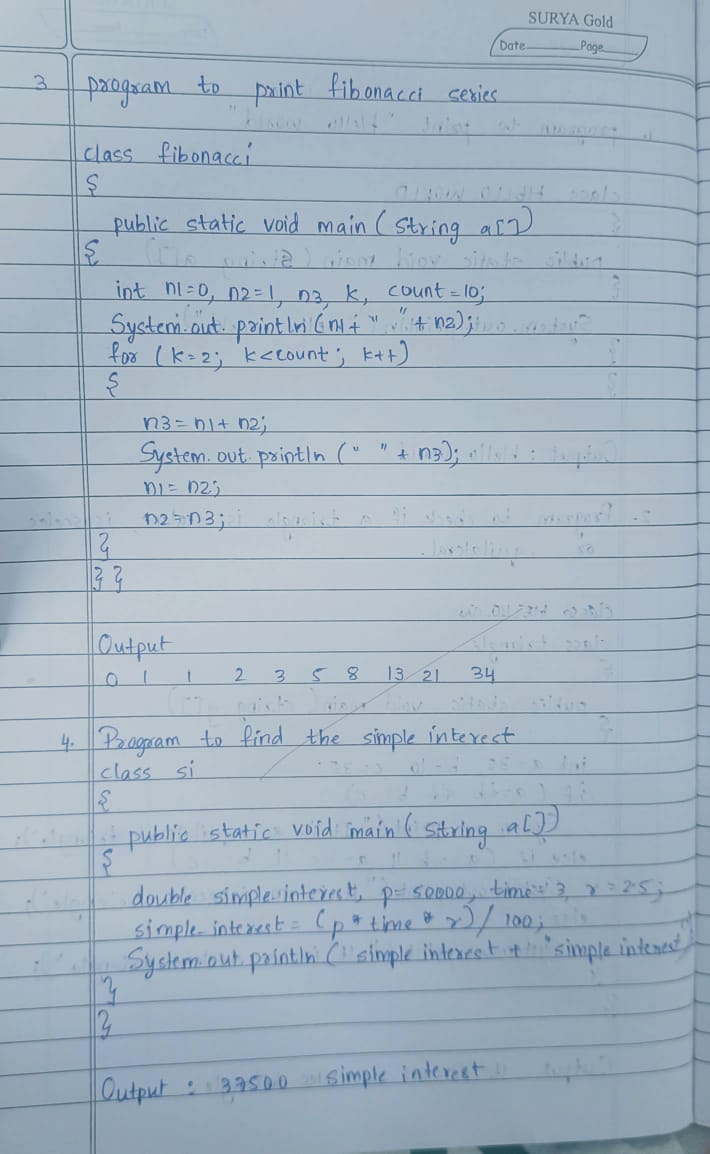 SURYA Gold
Date Page
3 program to print fibonacci series
class fibonacci
{
public static void main (String a[])
{
int n1=0, n2=1, n3, k, count=10;
System.out.println(n1+ " " + n2);
for (k=2; k<count; k++)
{
n3=n1+n2;
System.out.println (" " + n3);
n1=n2;
n2=n3;
}
}}
Output
0 1 1 2 3 5 8 13 21 34
4. Program to find the simple interest
class si
{
public static void main (String a[])
{
double simple interest, p=50000, time=3, r=25;
simple-interest = (p * time * r) / 100;
System.out.println ( simple interest + "simple interest
}
}
Output : 37500 simple interest